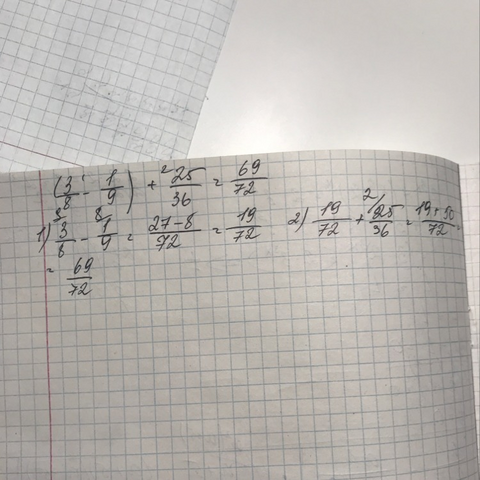 (3/8 - 1/9) + ²25/36 = 69/72
1) ⁹3/8 - ⁸1/9 = 27-8/72 = 19/72 2) 19/72 + ²25/36 = 19+50/72 =
= 69/72